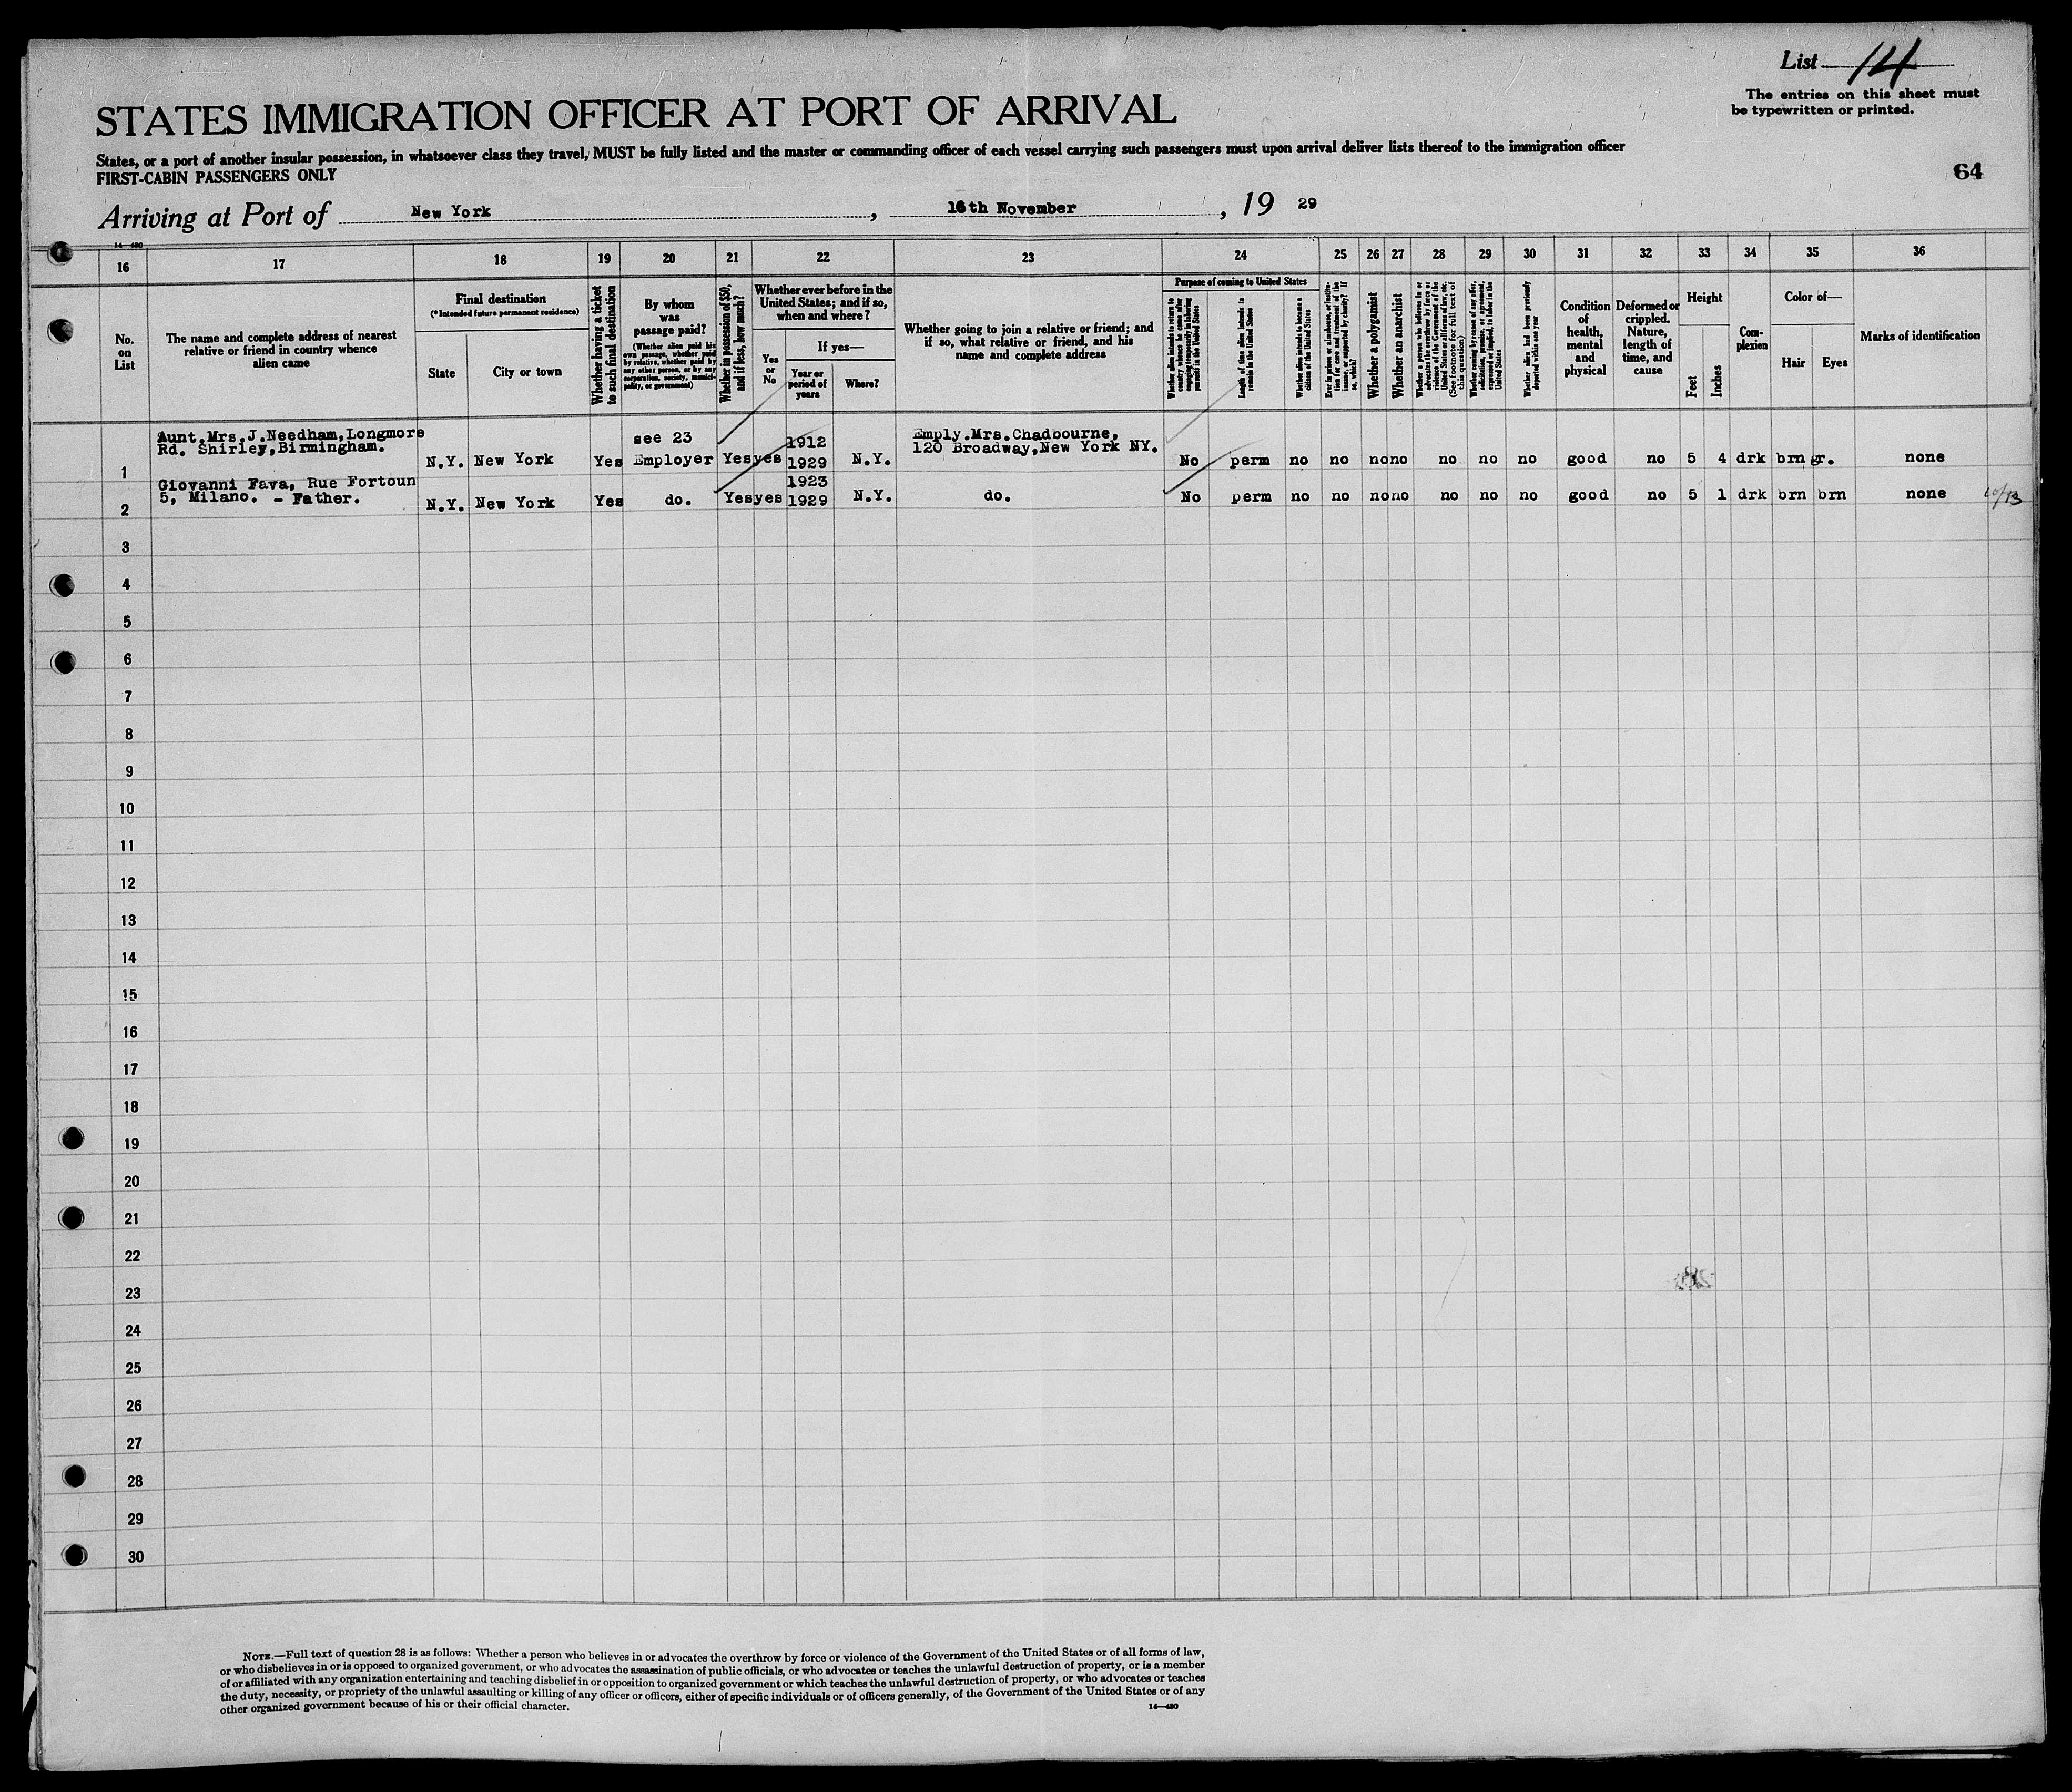 List 14
The entries on this sheet must
be typewritten or printed.
STATES IMMIGRATION OFFICER AT PORT OF ARRIVAL
States, or a port of another insular possession, in whatsoever class they travel, MUST be fully listed and the master or commanding officer of each vessel carrying such passengers must upon arrival deliver lists thereof to the immigration officer
FIRST-CABIN PASSENGERS ONLY
64
Arriving at Port of New York, 16th November, 19 29
14—480
16 17 18 19 20 21 22 23 24 25 26 27 28 29 30 31 32 33 34 35 36
No. on List
The name and complete address of nearest relative or friend in country whence alien came
Final destination
(*Intended future permanent residence)
State
City or town
Whether having a ticket to such final destination
By whom was passage paid?
(Whether alien paid his own passage, whether paid by relative, whether paid by any other person, or by any corporation, society, municipality, or government)
Whether in possession of $50, and if less, how much?
Whether ever before in the United States; and if so, when and where?
Yes or No
If yes—
Year or period of years
Where?
Whether going to join a relative or friend; and if so, what relative or friend, and his name and complete address
Purpose of coming to United States
Whether alien intends to return to country whence he came after engaging temporarily in laboring pursuits in the United States
Length of time alien intends to remain in the United States
Whether alien intends to become a citizen of the United States
Ever in prison or almshouse, or institution for care and treatment of the insane, or supported by charity? If so, which?
Whether a polygamist
Whether an anarchist
Whether a person who believes in or advocates the overthrow by force or violence of the Government of the United States or all forms of law, etc. (See footnote for full text of this question)
Whether coming by reason of any offer, solicitation, promise, or agreement, expressed or implied, to labor in the United States
Whether alien had been previously deported within one year
Condition of health, mental and physical
Deformed or crippled. Nature, length of time, and cause
Height
Feet
Inches
Complexion
Color of—
Hair
Eyes
Marks of identification
1 Aunt,Mrs,J.Needham,Longmore Rd. Shirley,Birmingham. N.Y. New York Yes see 23 Employer Yes yes 1912 1929 N.Y. Emply.Mrs.Chadbourne, 120 Broadway,New York NY. No perm no no no no no no no good no 5 4 drk brn gr. none
2 Giovanni Fava, Rue Fortoun 5, Milano. - Father. N.Y. New York Yes do. Yes yes 1923 1929 N.Y. do. No perm no no no no no no no good no 5 1 drk brn brn none
3
4
5
6
7
8
9
10
11
12
13
14
15
16
17
18
19
20
21
22
23
24
25
26
27
28
29
30
NOTE.—Full text of question 28 is as follows: Whether a person who believes in or advocates the overthrow by force or violence of the Government of the United States or of all forms of law,
or who disbelieves in or is opposed to organized government, or who advocates the assassination of public officials, or who advocates or teaches the unlawful destruction of property, or is a member
of or affiliated with any organization entertaining and teaching disbelief in or opposition to organized government or which teaches the unlawful destruction of property, or who advocates or teaches
the duty, necessity, or propriety of the unlawful assaulting or killing of any officer or officers, either of specific individuals or of officers generally, of the Government of the United States or of any
other organized government because of his or their official character.
14—480